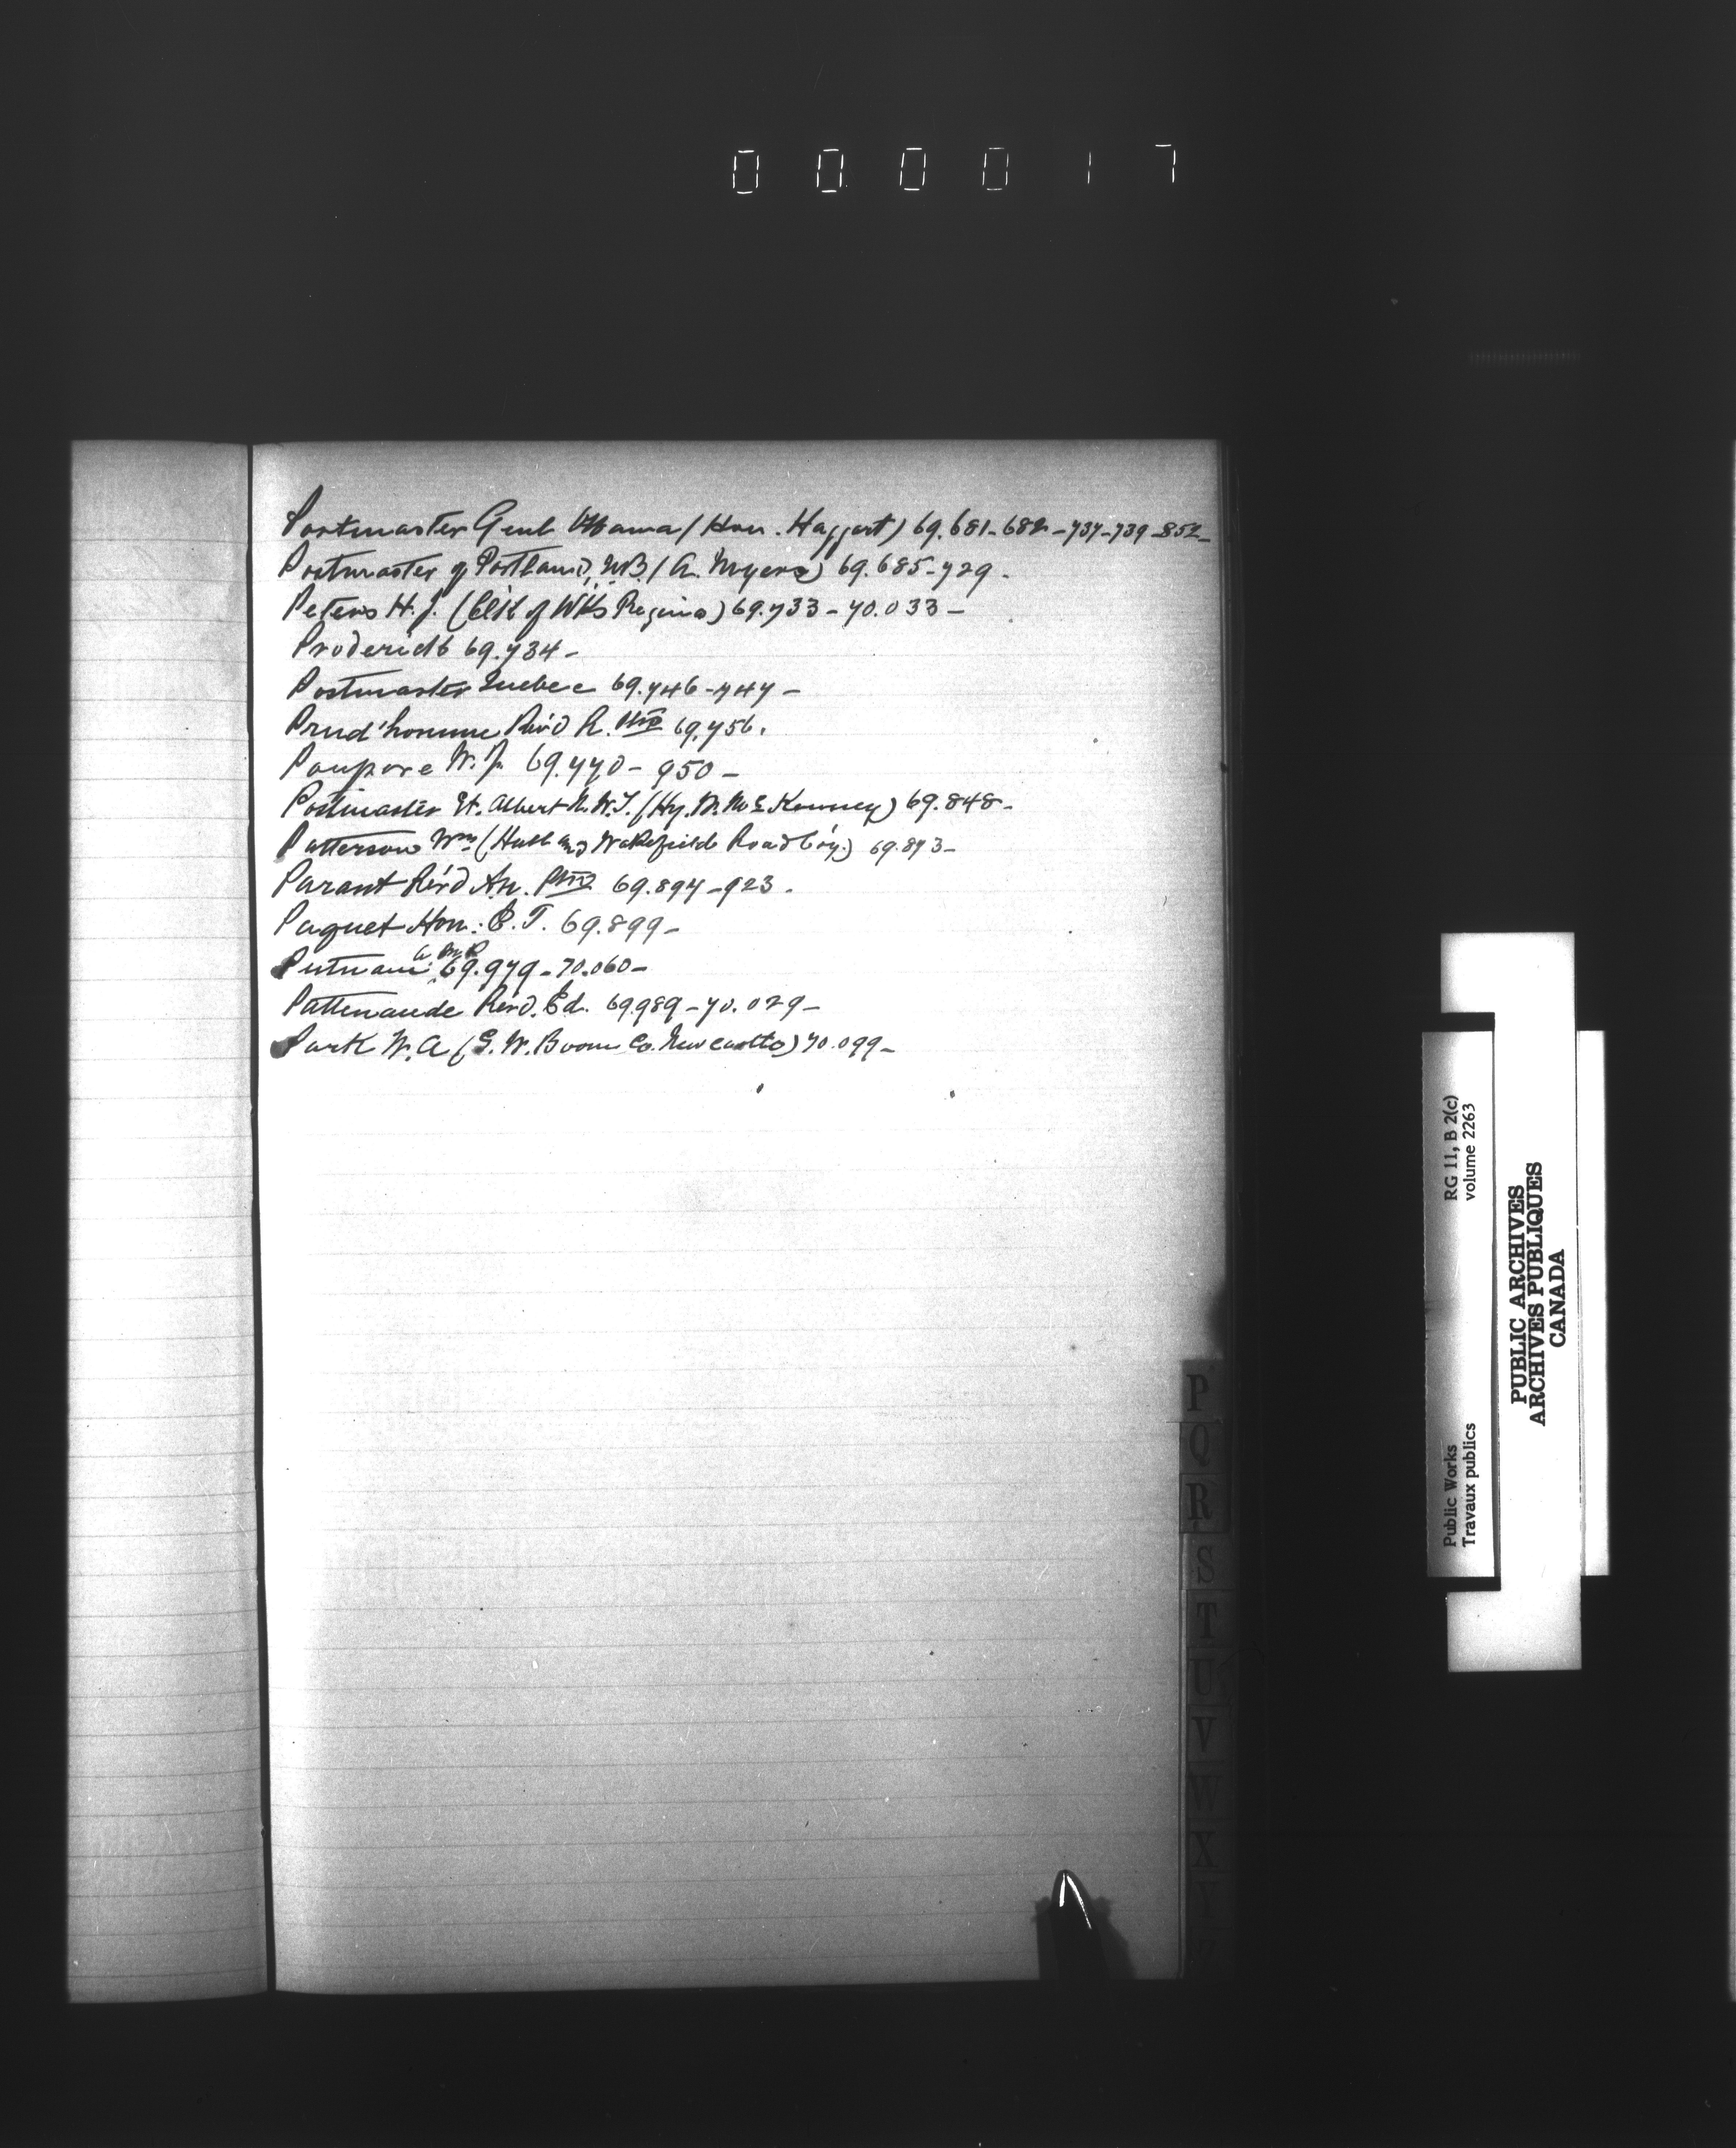 000017
Postmaster Genl Ottawa (Hon. Haggart) 69.681-682-737-739-852-
Postmaster of Portland, N.B. (A. Myers) 69.685-729-
Peters H.J. (Clk of Wks Regina) 69.733-70.033-
69.734-
Postmaster Quebec 69.746-747-
Prud'homme Rév'd R. Ptre 69.756.
Poupore W.J. 69.770-950-
Postmaster St. Albert N.W.T. (Hy. W. McKenney) 69.848-
Patterson Wm (Hull and Wakefield Road Co'y.) 69.873-
Parant Rév'd An. Ptre 69.894-923.
Paquet Hon: E.T. 69.899-
Putnam A. M.P. 69.979-70.060-
Pattenaude Rév'd. Ed. 69.989-70.029-
Park W.A (S.W. Boom Co. Newcastle) 70.099-
P
Q
R
S
T
U
V
W
X
Y
Z
Public Works
Travaux publics
RG 11, B 2(c)
volume 2263
PUBLIC ARCHIVES
ARCHIVES PUBLIQUES
CANADA